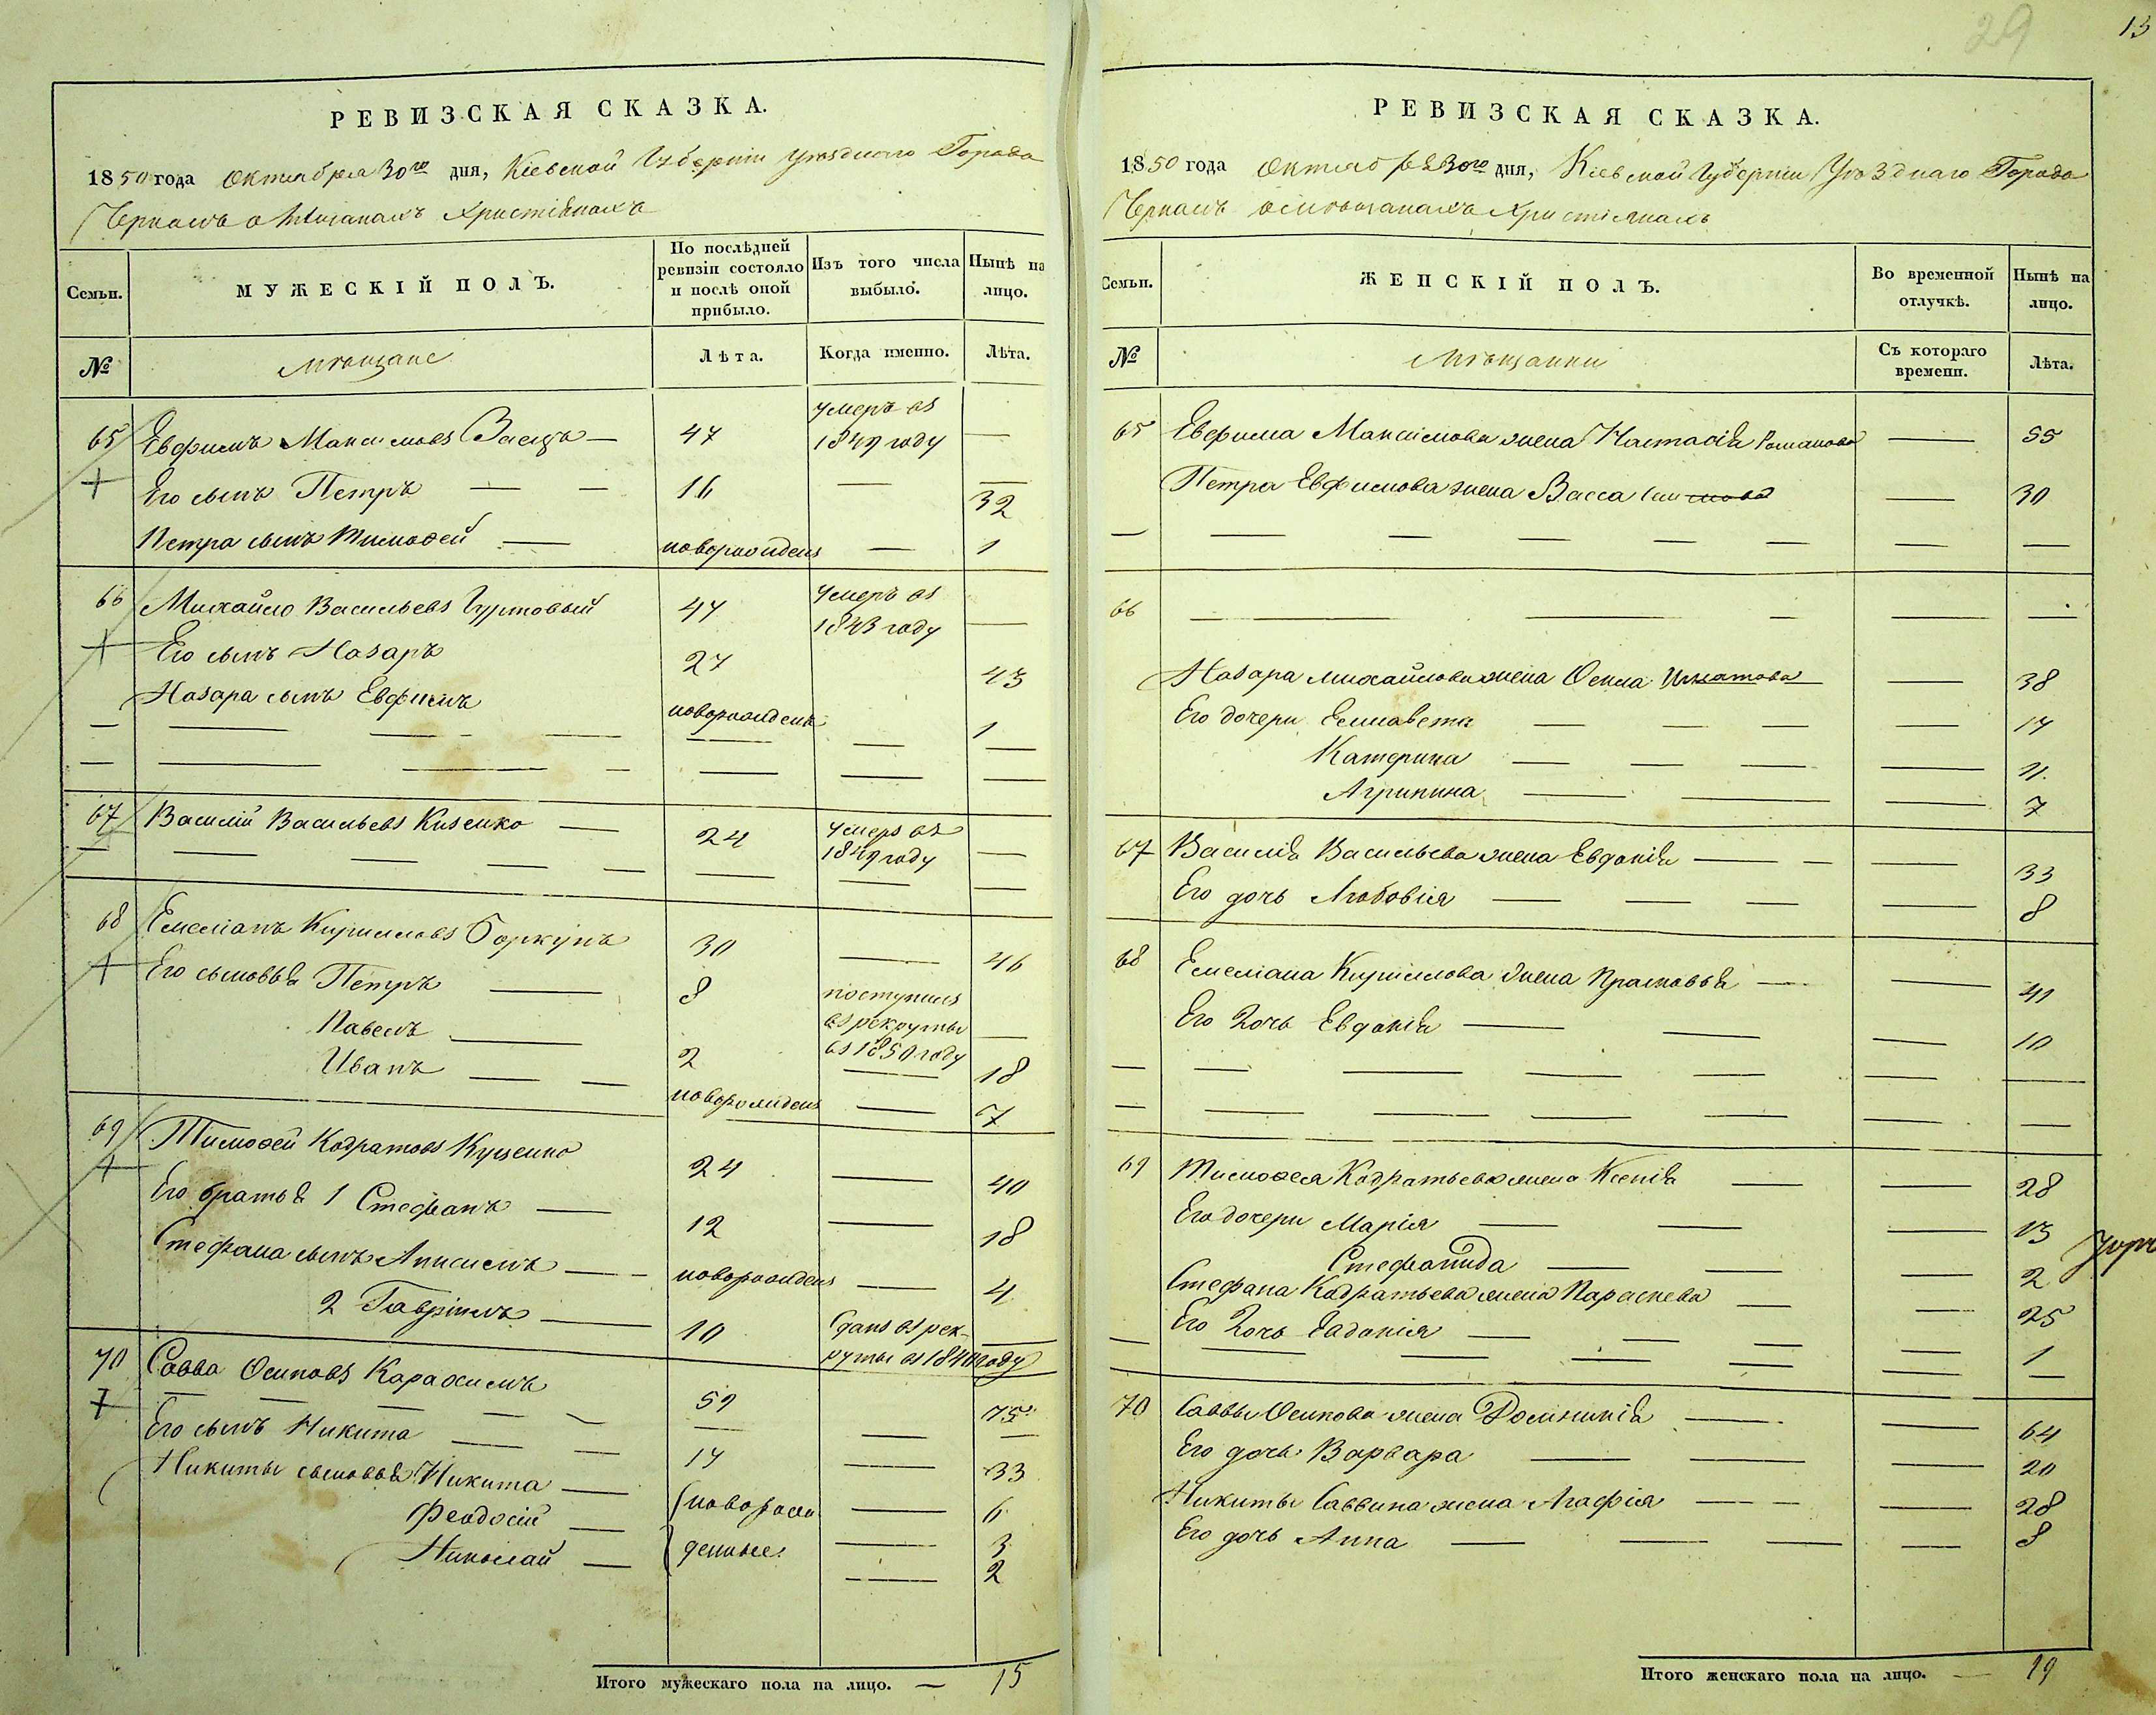 29
13
РЕВИЗСКАЯ СКАЗКА.
1850 года Октября 30го дня, Кіевской Губерніи Уѣзднаго Города
Черкасъ о Мѣщанахъ Христіянахъ
Семьи. МУЖЕСКІЙ ПОЛЪ. По послѣдней ревизіи состояло и послѣ оной прибыло. Изъ того числа выбыло. Нынѣ на лицо.
№ мѣщане Лѣта. Когда именно. Лѣта.
65 Евфимъ Максимовъ Заецъ — 47 умеръ въ 1849 году —
Его сынъ Петръ — — 16 — 32
Петра сынъ Тимофей — новорожденъ — 1
66 Михайло Васильевъ Гуртовый 47 Умеръ въ 1843 году —
Его сынъ Назаръ 27 43
Назара сынъ Евфимъ новорожденъ 1
67 Василій Васильевъ Кизенко — 24 умеръ въ 1849 году —
68 Емеліанъ Кирилловъ Боркунъ 30 — 46
Его сыновья Петръ — 8 поступилъ въ рекруты въ 1850 году —
Павелъ — 2 — 18
Иванъ — — новорожденъ — 7
69 Тимофей Кодратовъ Куценко 24 — 40
Его братья 1 Стефанъ — 12 — 18
Стефана сынъ Анисимъ — новорожденъ — 4
2 Гавріилъ — 10 Сданъ въ рекруты въ 1840 году —
70 Савва Осиповъ Карахимъ 59 — 75
Его сынъ Никита — — 17 — 33
Никиты сыновья Никита — новорож — 6
Феодосій — денные. — 3
Николай — — 2
Итого мужескаго пола на лицо. — 15
РЕВИЗСКАЯ СКАЗКА.
1850 года Октября 30го дня, Кіевской Губерніи Уѣзднаго Города
Черкасъ о мѣщанахъ Христіянахъ
Семьи. ЖЕНСКІЙ ПОЛЪ. Во временной отлучкѣ. Нынѣ на лицо.
№ Мѣщанки Съ котораго времени. Лѣта.
65 Евфима Максимова жена Настасія Романова — 55
Петра Евфимова жена Васса — 30
66
Назара михайлова жена Оенла Игнатова — 38
Его дочери Елисавета — — — 17
Катерина — — — 11.
Агрипина — — — 7
67 Василія Васильева жена Евдокія — — — 33
Его дочь Любовія — — — — 8
68 Емеліана Кириллова жена Прасковья — — 41
Его дочь Евдокія — — — 10
69 Тимофея Кодратьева жена Ксенія — — 28
Его дочери Марія — — — 13
Стефанида — — — 2
Стефана Кодратьева жена Параскева — — 25
Его дочь Евдокія — — — — 1
70 Саввы Осипова жена Домникія — — 64
Его дочь Варвара — — — 20
Никиты Саввина жена Агафія — — — 28
Его дочь Анна — — — — 8
Итого женскаго пола на лицо. — 19